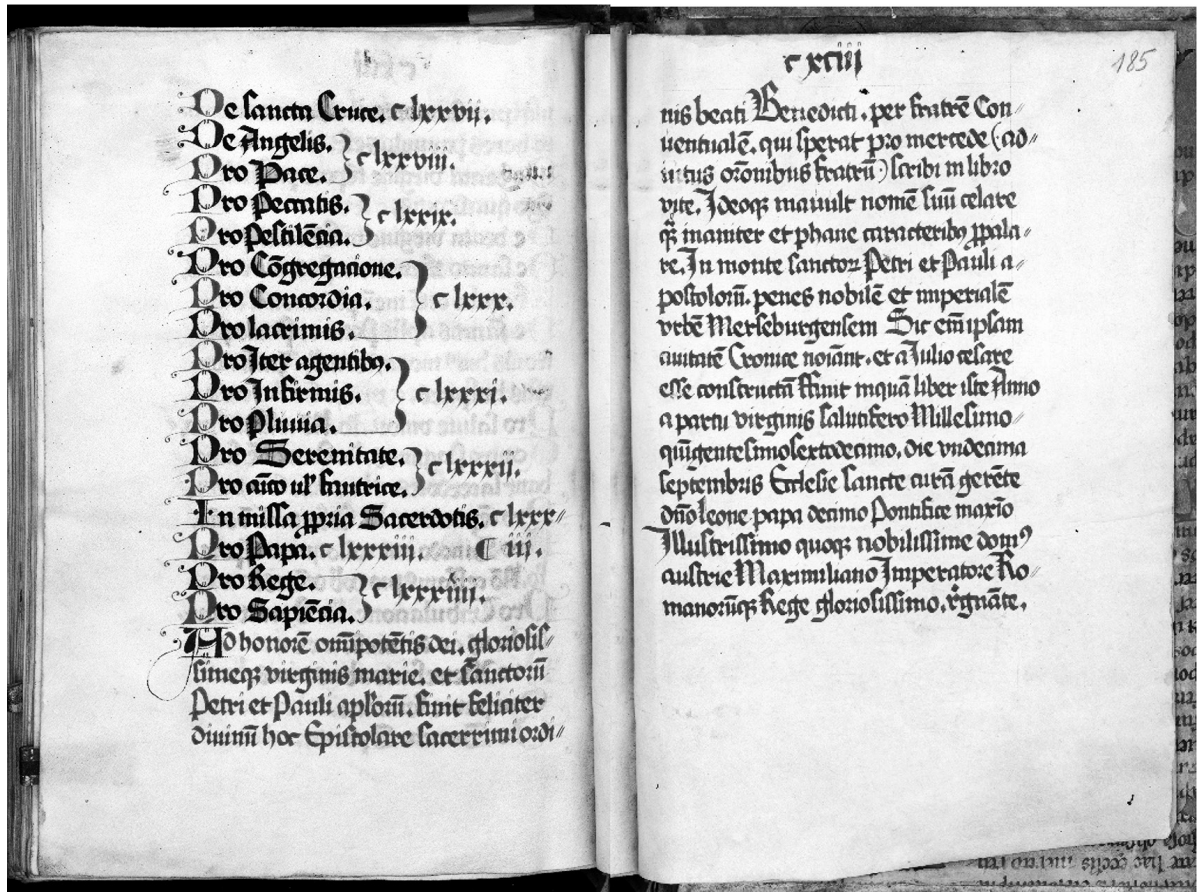 De sancta Cruce. c lxxvij.
De Angelis.
c lxxviii.
Pro Pace.
Pro Peccatis.
c lxxix.
Pro Pestilēcia.
Pro Cōgregacione.
Pro Concordia.
c lxxx.
Pro lacrimis.
Pro Iter agentibꝰ.
Pro Infirmis.
c lxxxi.
Pro Pluuia.
Pro Serenitate.
c lxxxii.
Pro aīco ul' fautrice.
In missa ꝓpria Sacerdotis. c lxxx⸗
Pro Papa. c lxxxiii. ⸿ iii.
Pro Rege.
c lxxxiiii.
Pro Sapiēcia.
Ad honorē om̄ipotētis dei. gloriosis⸗
simeqꝫ virginis marie. et sanctorū
Petri et Pauli apl'orū. finit feliciter
diuinū hoc Epistolare sacerrimi ordi⸗
c xciii
185
nis beati Benedicti. per fratrē Con⸗
uentualē. qui sperat pro mercede (ad⸗
iutus orōnibus fratrū) scribi in libro
vite. Ideoqꝫ mauult nomē suū celare
qꝫ inaniter et phane caracteribꝰ ꝓpala⸗
re. In monte sanctoꝝ Petri et Pauli a⸗
postolorū. penes nobilē et imperialē
vrbē Merseburgensem Sic em̄ ipsam
ciuitatē Cronice noīant. et a Iulio cesare
esse constructā ffinit inquā liber iste Anno
a partu virginis salutifero Millesimo
quīgentesimosextodecimo. die vndecima
septembris Ecclesie sancte curā gerēte
dn̄o leone papa decimo Pontifice maxīo
Illustrissimo quoqꝫ nobilissime domꝰ
austrie Maximiliano Imperatore Ro⸗
manorūqꝫ Rege gloriosissimo. regnāte.